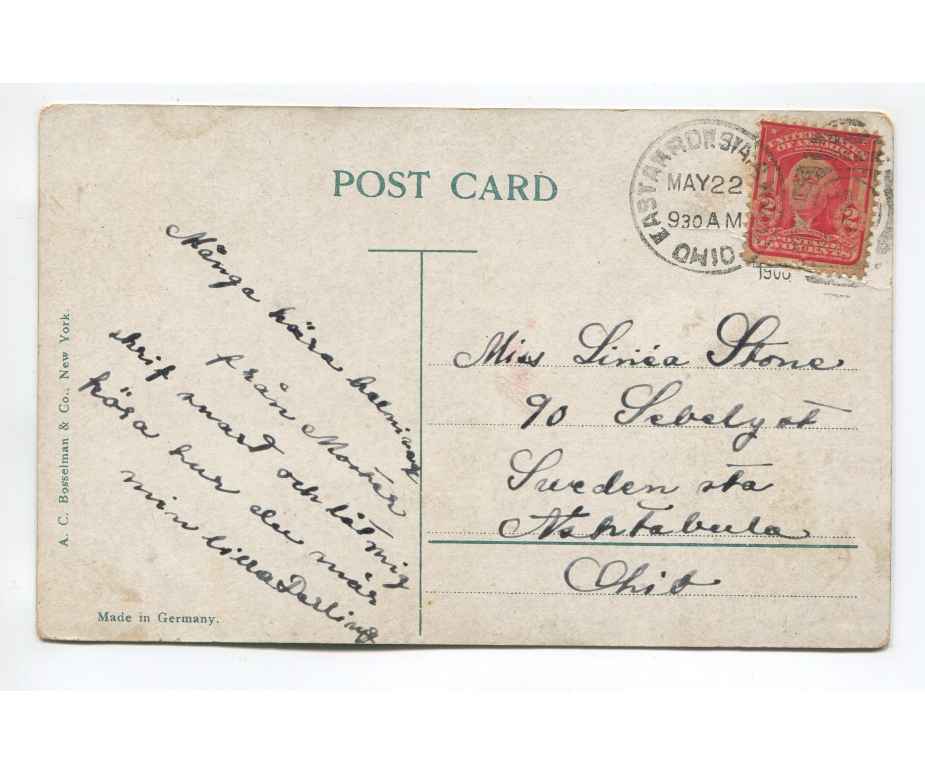 POST CARD
EAST AKRON STA.
OHIO
MAY 22
930 AM
UNITED STATES
OF AMERICA
2 2
POSTAGE
TWO CENTS
Många kära helsningar
från Moster
skrif snart och låt mig
höra hur du mår
min lilla Darling
Miss Linéa Stone
90 Sebely st
Sweden sta
Ashtabula
Ohio
A. C. Bosselman & Co., New York.
Made in Germany.